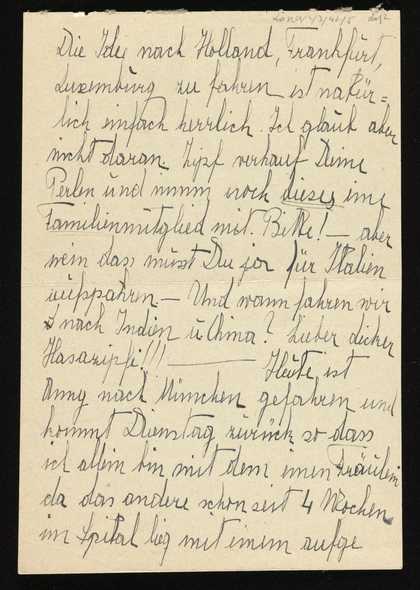 Die Idee nach Holland, Frankfurt,
Luxemburg zu fahren ist natür=
lich einfach herrlich. Ich glaub aber
nicht daran. Zipf verkauf Deine
Perlen und nimm noch dieses eine
Familienmitglied mit. Bitte! — aber
nein das müsst Du ja für Italien
aufsparen — Und wann fahren wir
nach Indien u China? Lieber dicker
Hasazipfi!!! — Heute ist
Anny nach München gefahren und
kommt Dienstag zurück so dass
ich allein bin mit dem einen Fräulein
da das andere schon seit 4 Wochen
im Spital lieg mit einem aufge